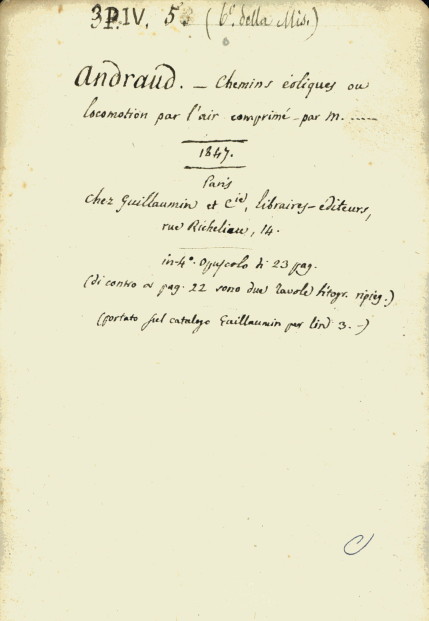 3P.IV, 5. (6ª. della Mis.)
Andraud. — Chemins éoliques ou
locomotion par l'air comprimé par M. .....
1847.
Paris
Chez Guillaumin et Cie, libraires-éditeurs,
rue Richelieu, 14.
in-4°. Opuscolo di 23 pag.
(di contro a pag. 22 sono due tavole litogr. ripieg.)
(portato sul catalogo Guillaumin per lire 3. -)